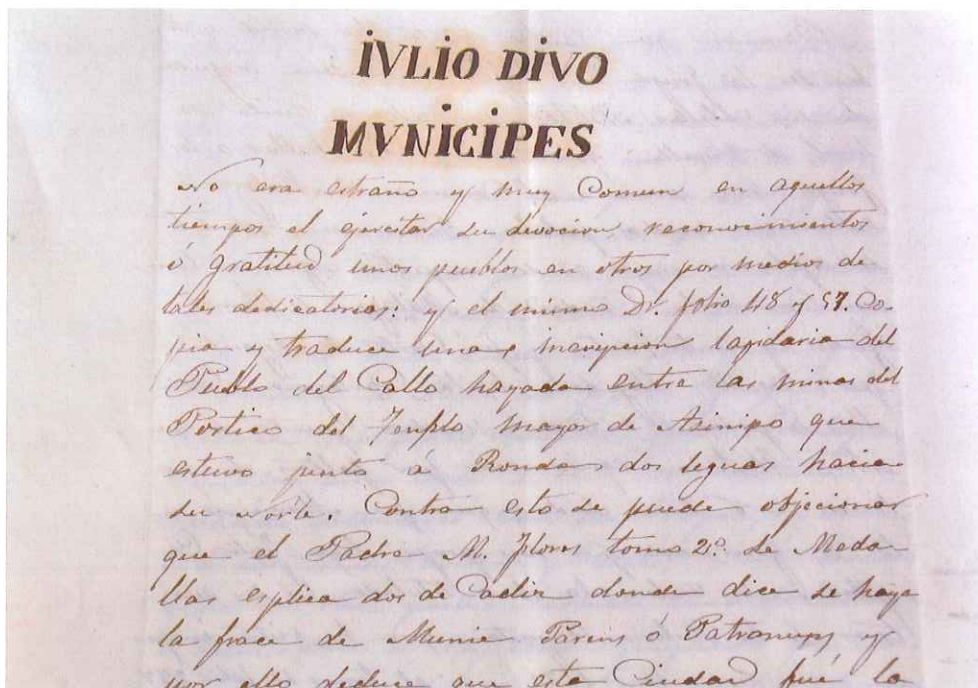 IVLIO DIVO
MVNICIPES
No era estraño y muy Comun en aquellos
tiempos el ejercitar su devocion, reconocimientos
ó gratitud unos pueblos en otros por medios de
tales dedicatorias: y el mismo Dr. folio 48 y 57. Co-
pia y traduce una inscripcion lapidaria del
Pueblo del Callo hayada entre las ruinas del
Portico del Templo mayor de Asinipo que
estuvo junto á Ronda dos leguas hacia
su norte. Contra esto se puede objecionar
que el Padre M. Flores tomo 2º. de Meda-
llas esplica dos de Cadiz donde dice se haya
la frace de Munic Parens ó Patronus y
por ello deduce que esta Ciudad fué la